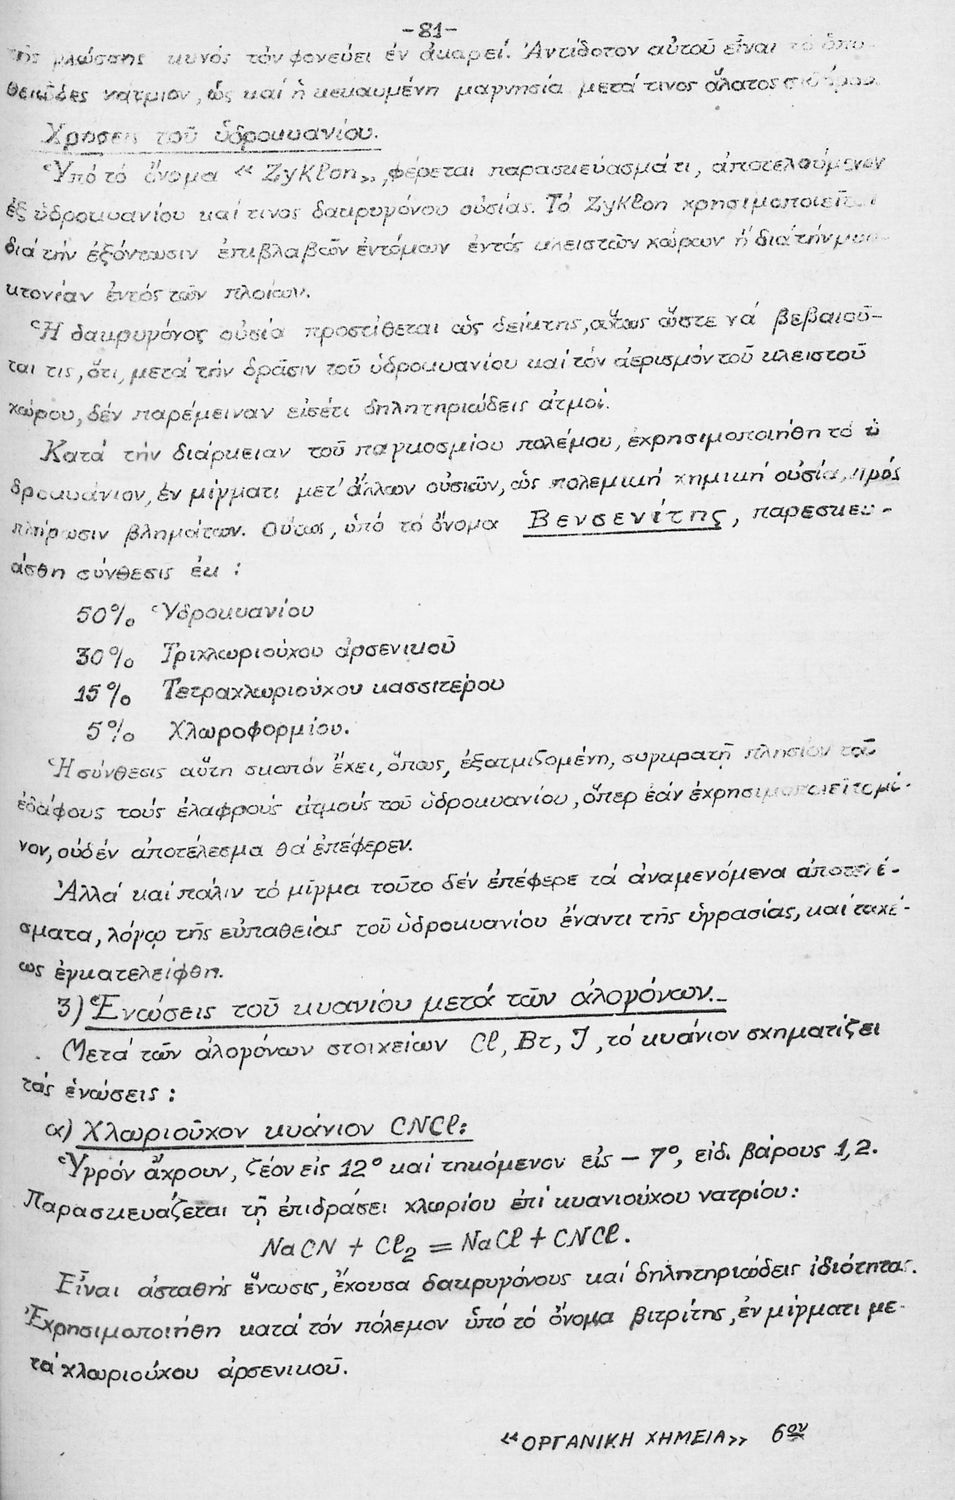 -81-
τῆς γλώσσης κυνός τόν φονεύει ἐν ἀκαρεί. Ἀντίδοτον αὐτοῦ εἶναι τό ὑπο-
θειῶδες νάτριον, ὡς καί ἡ κεκαυμένη μαγνησία μετά τινος ἅλατος σιδήρου.
Χρήσεις τοῦ ὑδροκυανίου.
Ὑπό τό ὄνομα « ZyKlon», φέρεται παρασκεύασμά τι, ἀποτελούμενον
ἐξ ὑδροκυανίου καί τινος δακρυγόνου οὐσίας. Τό ZyKlon χρησιμοποιεῖται
διά τήν ἐξόντωσιν ἐπιβλαβῶν ἐντόμων ἐντός κλειστῶν χώρων ἤ διά τήν μυο-
κτονίαν ἐντός τῶν πλοίων.
Ἡ δακρυγόνος οὐσία προστίθεται ὡς δείκτης, οὕτως ὥστε νά βεβαιοῦ-
ται τις, ὅτι, μετά τήν δρᾶσιν τοῦ ὑδροκυανίου καί τόν ἀερισμόν τοῦ κλειστοῦ
χώρου, δέν παρέμειναν εἰσέτι δηλητηριώδεις ἀτμοί.
Κατά τήν διάρκειαν τοῦ παγκοσμίου πολέμου, ἐχρησιμοποιήθη τό ὑ
δροκυάνιον, ἐν μίγματι μετ' ἄλλων οὐσιῶν, ὡς πολεμική χημική οὐσία, πρός
πλήρωσιν βλημάτων. Οὕτως, ὑπό τό ὄνομα Βενσενίτης, παρεσκευ-
άσθη σύνθεσις ἐκ :
50% Ὑδροκυανίου
30% Τριχλωριούχου ἀρσενικοῦ
15% Τετραχλωριούχου κασσιτέρου
5% Χλωροφορμίου.
Ἡ σύνθεσις αὕτη σκοπόν ἔχει, ὅπως, ἐξατμιζομένη, συγκρατῇ πλησίον τοῦ
ἐδάφους τούς ἐλαφρούς ἀτμούς τοῦ ὑδροκυανίου, ὅπερ ἐάν ἐχρησιμοποιεῖτο μό-
νον, οὐδέν ἀποτέλεσμα θά ἐπέφερεν.
Ἀλλά καί πάλιν τό μῖγμα τοῦτο δέν ἐπέφερε τά ἀναμενόμενα ἀποτελέ-
σματα, λόγῳ τῆς εὐπαθείας τοῦ ὑδροκυανίου ἔναντι τῆς ὑγρασίας, καί ταχέ-
ως ἐγκατελείφθη.
3) Ἑνώσεις τοῦ κυανίου μετά τῶν ἀλογόνων.-
Μετά τῶν ἀλογόνων στοιχείων Cl, Br, J, τό κυάνιον σχηματίζει
τάς ἑνώσεις :
α) Χλωριοῦχον κυάνιον CNCl:
Ὑγρόν ἄχρουν, ζέον εἰς 12° καί τηκόμενον εἰς - 7°, εἰδ. βάρους 1,2.
Παρασκευάζεται τῇ ἐπιδράσει χλωρίου ἐπί κυανιούχου νατρίου:
NaCN + Cl₂ = NaCl + CNCl.
Εἶναι ἀσταθής ἕνωσις, ἔχουσα δακρυγόνους καί δηλητηριώδεις ἰδιότητας.
Ἐχρησιμοποιήθη κατά τόν πόλεμον ὑπό τό ὄνομα βιτρίτης, ἐν μίγματι με-
τά χλωριούχου ἀρσενικοῦ.
«ΟΡΓΑΝΙΚΗ ΧΗΜΕΙΑ» 6ον